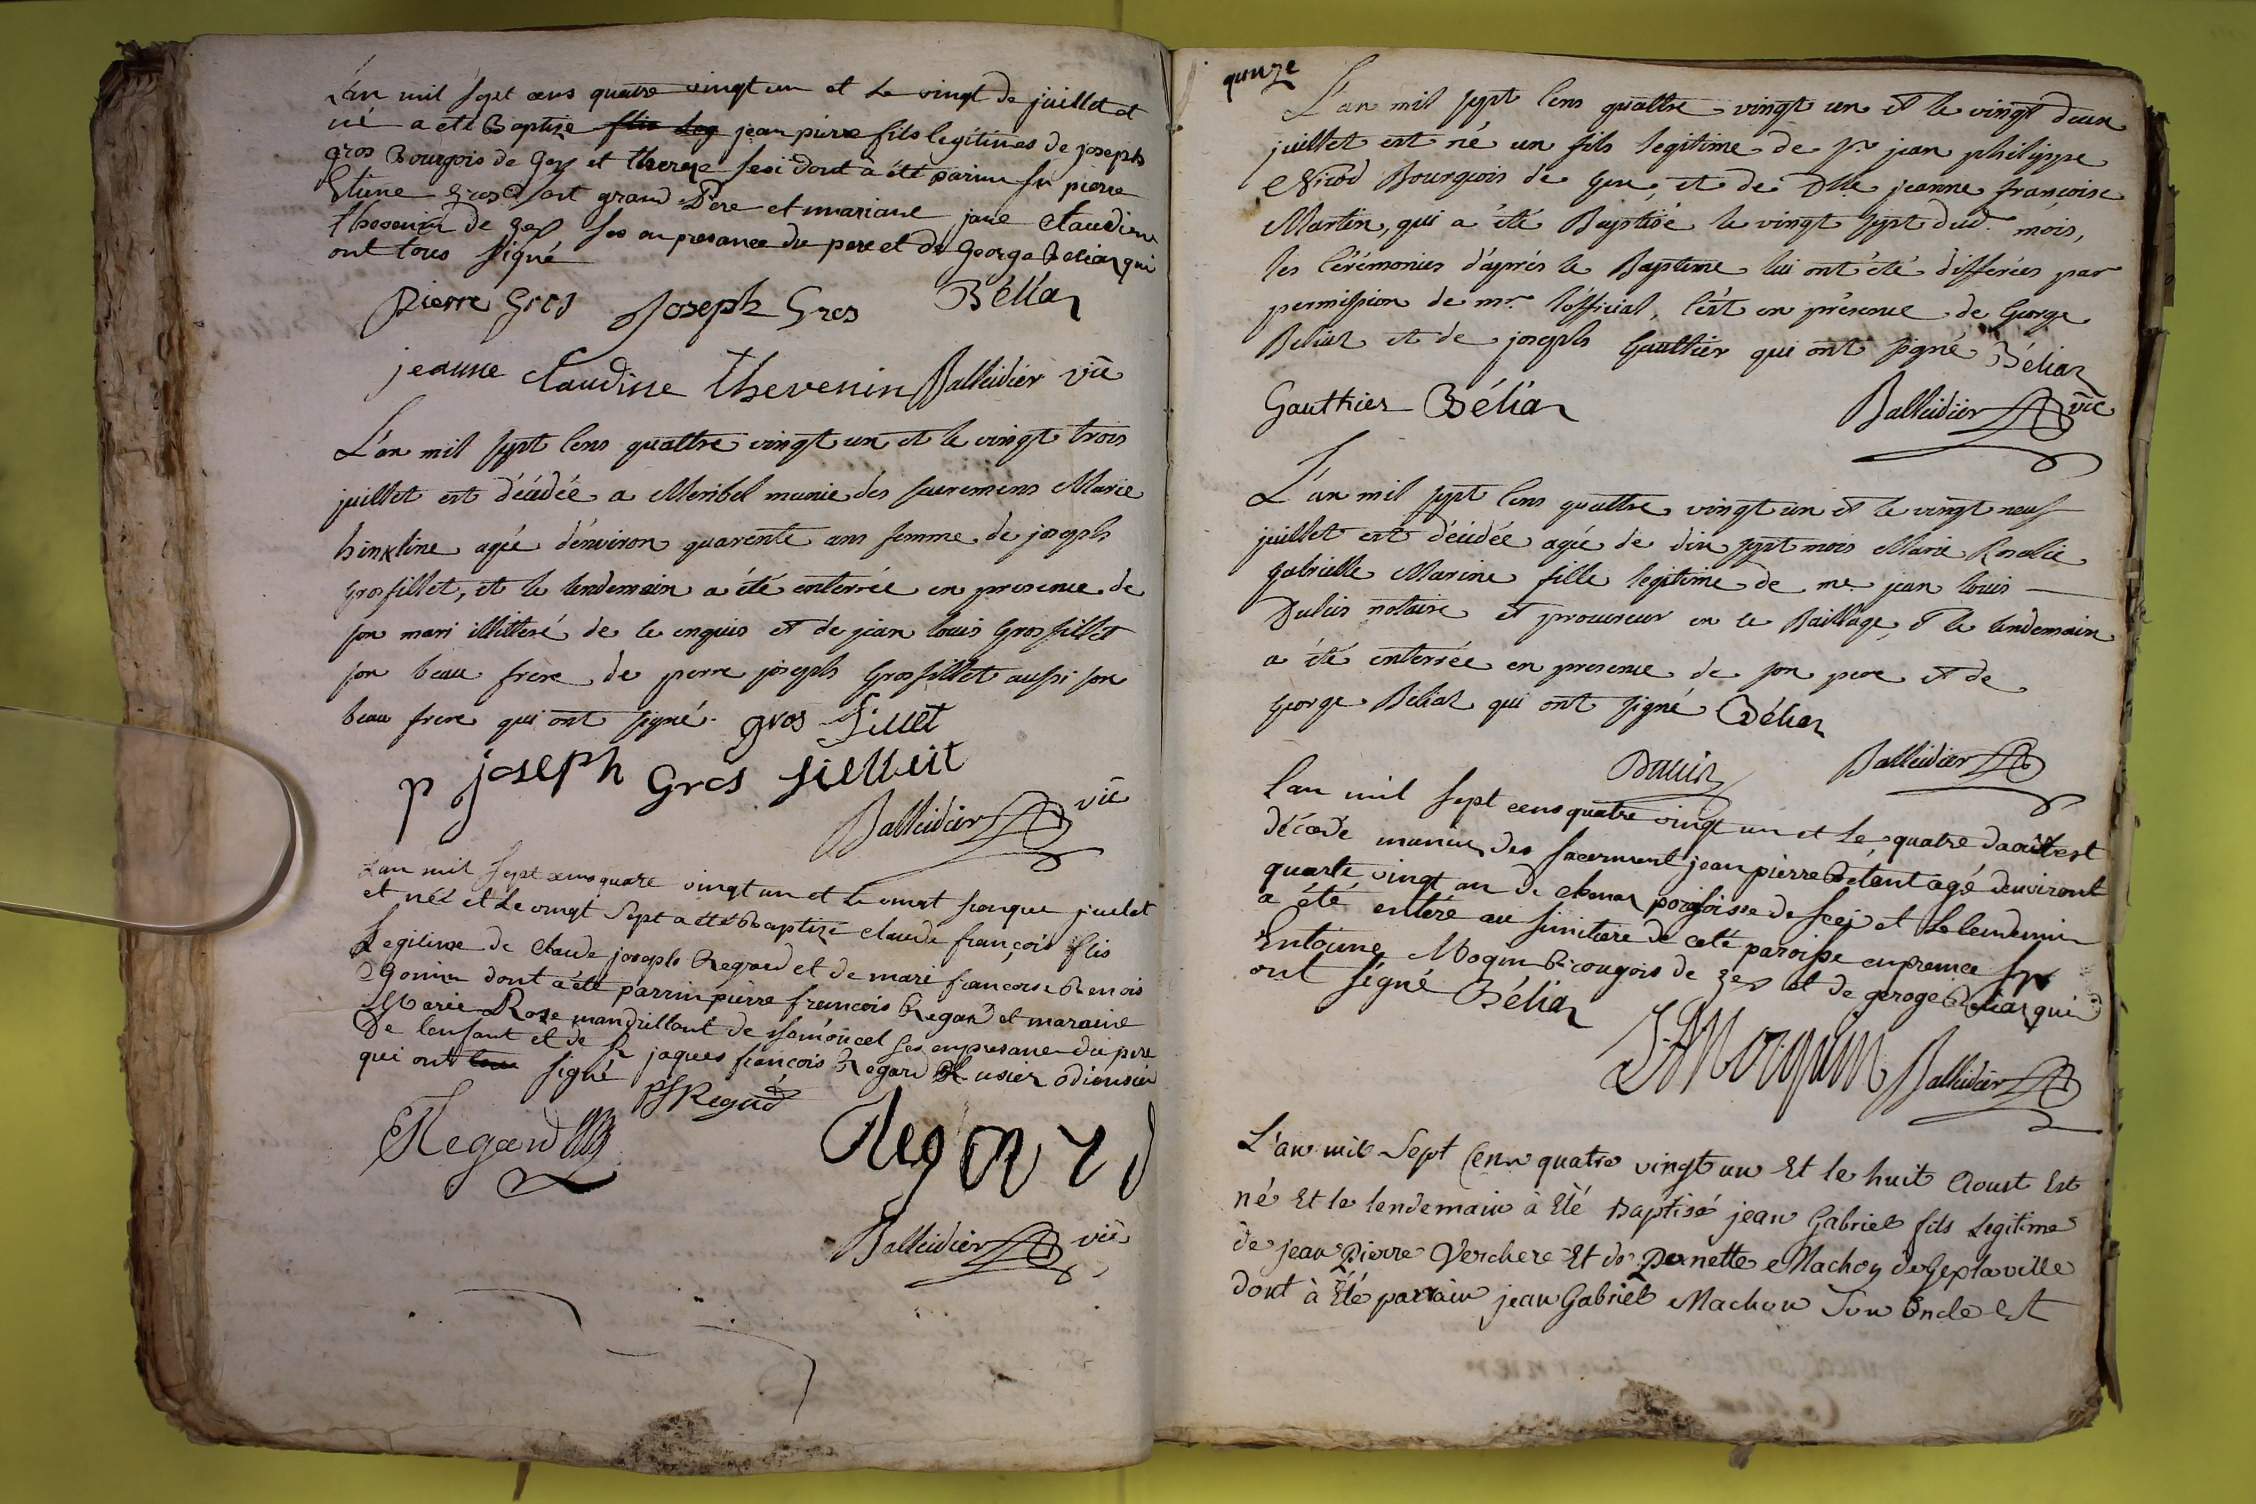 L'an mil sept cens quatre vingt un et Le vingt de juillet et
né a eté Baptize jean pierre fils legitimes de joseph
gros Bourgois de Gex et therese dont à été parin sr pierre
Etiene gros sont grand Pere et mariane jane Claudine
thevenin de gex fes en presance du pere et de George Beliar qui
ont tous signé
Pierre Gros Joseph Gros Béliar
jeanne Claudine thevenin Balleidier vic
L'an mil sept cens quattre vingt un et le vingt trois
juillet est décédée a Meribel munie des sacremens Marie
agée d'environ quarente ans femme de joseph
grosfillet, et le lendemain a été enterrée en presence de
son mari illitteré de ce enquis et de jean louis Grosfillet
son beau frere de pierre joseph Grosfillet aussi son
beau frere qui ont signé. gros fillet
p joseph Gros
Balleidier vic
L'an mil sept cens quare vingt un et Le vingt sinque juelet
et néé et Le vingt sept a été Baptizé claude françois flis
Legitime de claude joseph Regard et de mari francoise Benois
Gonin dont a été parrin pierre francois Regard et maraine
Marie Rose mandrillont de fes enpresance du pere
De l'enfant et de Sr jaques francois Regard
qui ont signé
Regard Regard
Balleidier vic
qunze
L'an mil sept cens quattre vingt un et le vingt deux
juillet est né un fils legitime de Sr jean philippe
Nicod Bourgeois de Gex, et de Dlle jeanne francoise
Martin, qui a été Baptisé le vingt sept dud. mois,
les cérémonies d'aprés le Baptême lui ont été differées par
permission de mr l'official, c'est en présence de George
Beliar et de joseph Gauthier qui ont signé Béliar
Gauthier Béliar Balleidier vic
L'an mil sept cens quattre vingt un et le vingt neuf
juillet est décédée agée de dix sept mois Marie Rosalie
gabrielle Marine fille legitime de me jean louis
notaire et procureur en ce Baillage, et le lendemain
a été enterrée en presence de son pere et de
george Beliar qui ont signé Béliar
Balleidier
l'an mil sept cens quatre vingt un et Le quatre daoût est
décede munie des sacerment jean pierre agé denviront
quarte vingt an de chenar poroisse de et Le lendemin
a été entéré au simitiere de ceté paroisse enpremce Sr
Entoine Moquin Bourgois de gex et de geroge Beliar qui
ont signé Béliar
Balleidier
L'an mil Sept Cens quatre vingt un Et le huit Aoust Est
né Et le lendemain à Eté Baptisé jean Gabriel fils Legitime
de jean Pierre Verchere Et de Pernette Machon de Gex la ville
dont à Eté parrain jean Gabriel Machon Son Oncle et